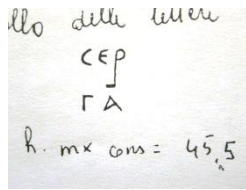 llo delle lettere
СЄΡ
ΓΑ
h. mx cons = 45,5